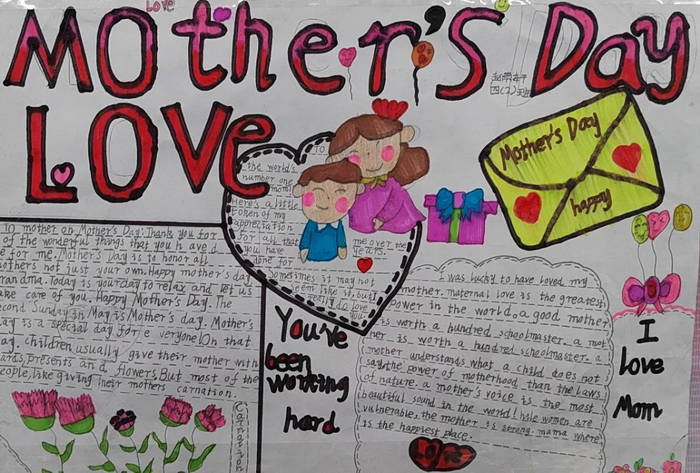 Love
Mother's Day
四(2)班
Love
To
the world's
number one
Here's a little
token of my
appreciation
for all that
you have
done for
me over the
years.
Sometimes it may not
seem like it, but
I really do love
Mother's Day
happy
To mother on Mother's Day: Thank you for
of the wonderful things that you h ave d
e for me. Mother's Day is to honor all
others not just your own. Happy mother's day
randma. Today is your day to relax and let us
ake care of you. Happy Mother's Day. The
econd Sunday in May is Mother's day. Mother's
ay is a special day for e veryone. On that
ay, children usually give their mother with
ards, presents and flowers. But most of the
eople, like giving their mothers carnation.
Carnation
You've
been
working
hard
I was lucky to have loved my
mother. maternal love is the greatest
Power in the world. a good mother
is worth a hundred schoolmaster. a mot
her is worth a hundred schoolmaster. a
mother understands what a child does not
say. the power of motherhood than the laws
of nature. a mother's voice is the most
beautiful sound in the world! hsle women are
vulnerable, the mother is strong. mama where
is the happiest place.
Love
I
Love
Mom